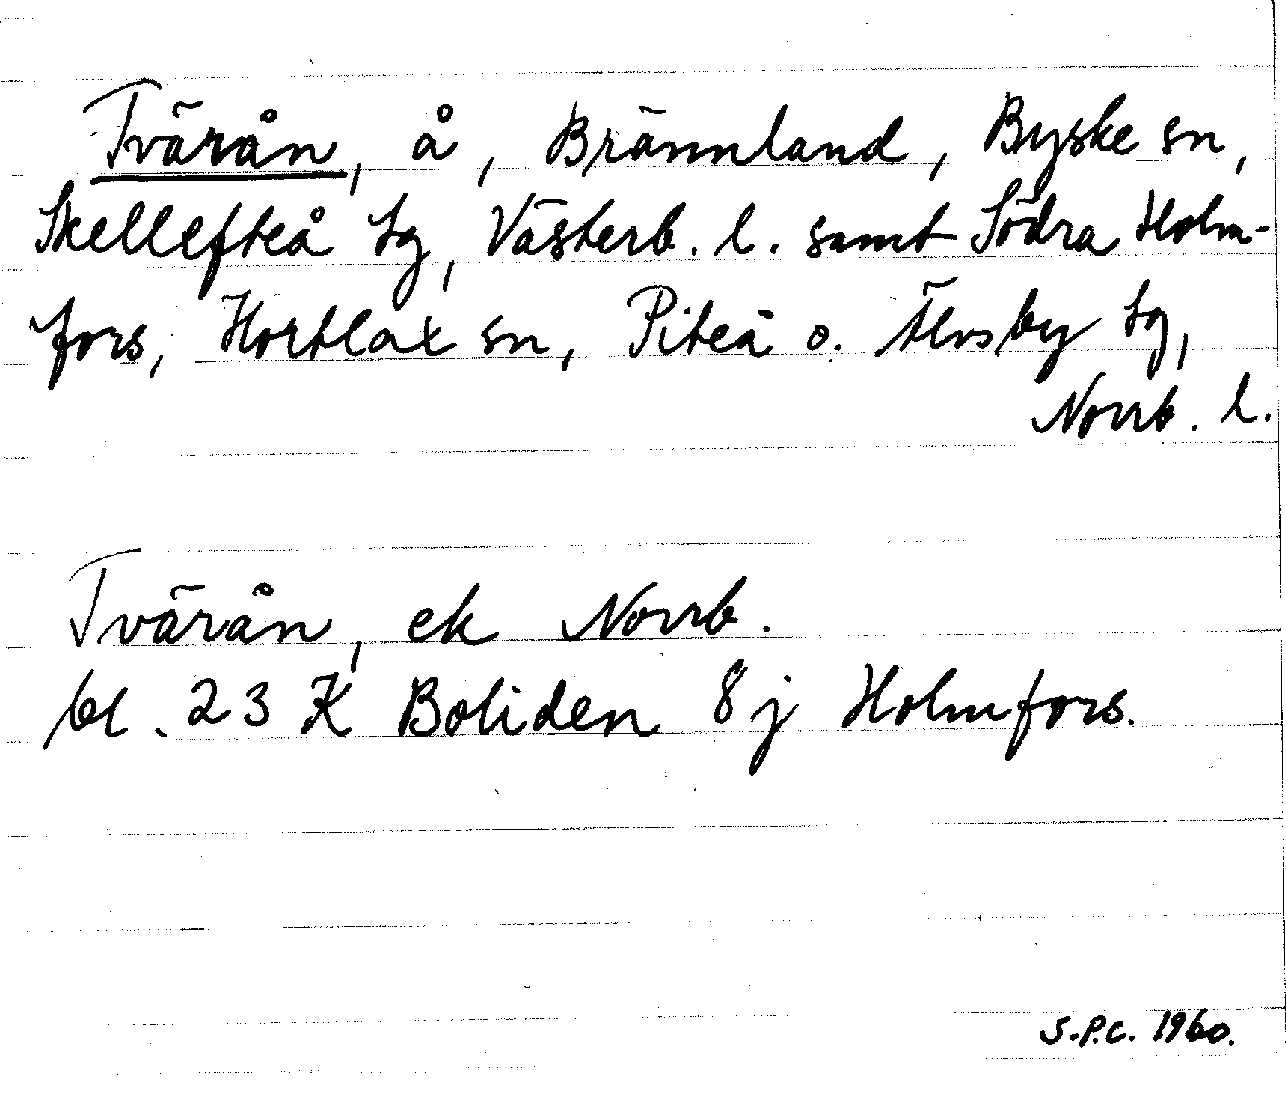 Tvärån, å, Brännland, Byske sn,
Skellefteå tg, Västerb. l. samt Södra Holm-
fors, Hortlax sn, Piteå o. Älvsby tg,
Norrb. l.
Tvärån, ek Norrb.
bl. 23 K Boliden 8 j Holmfors.
S.P.C. 1960.